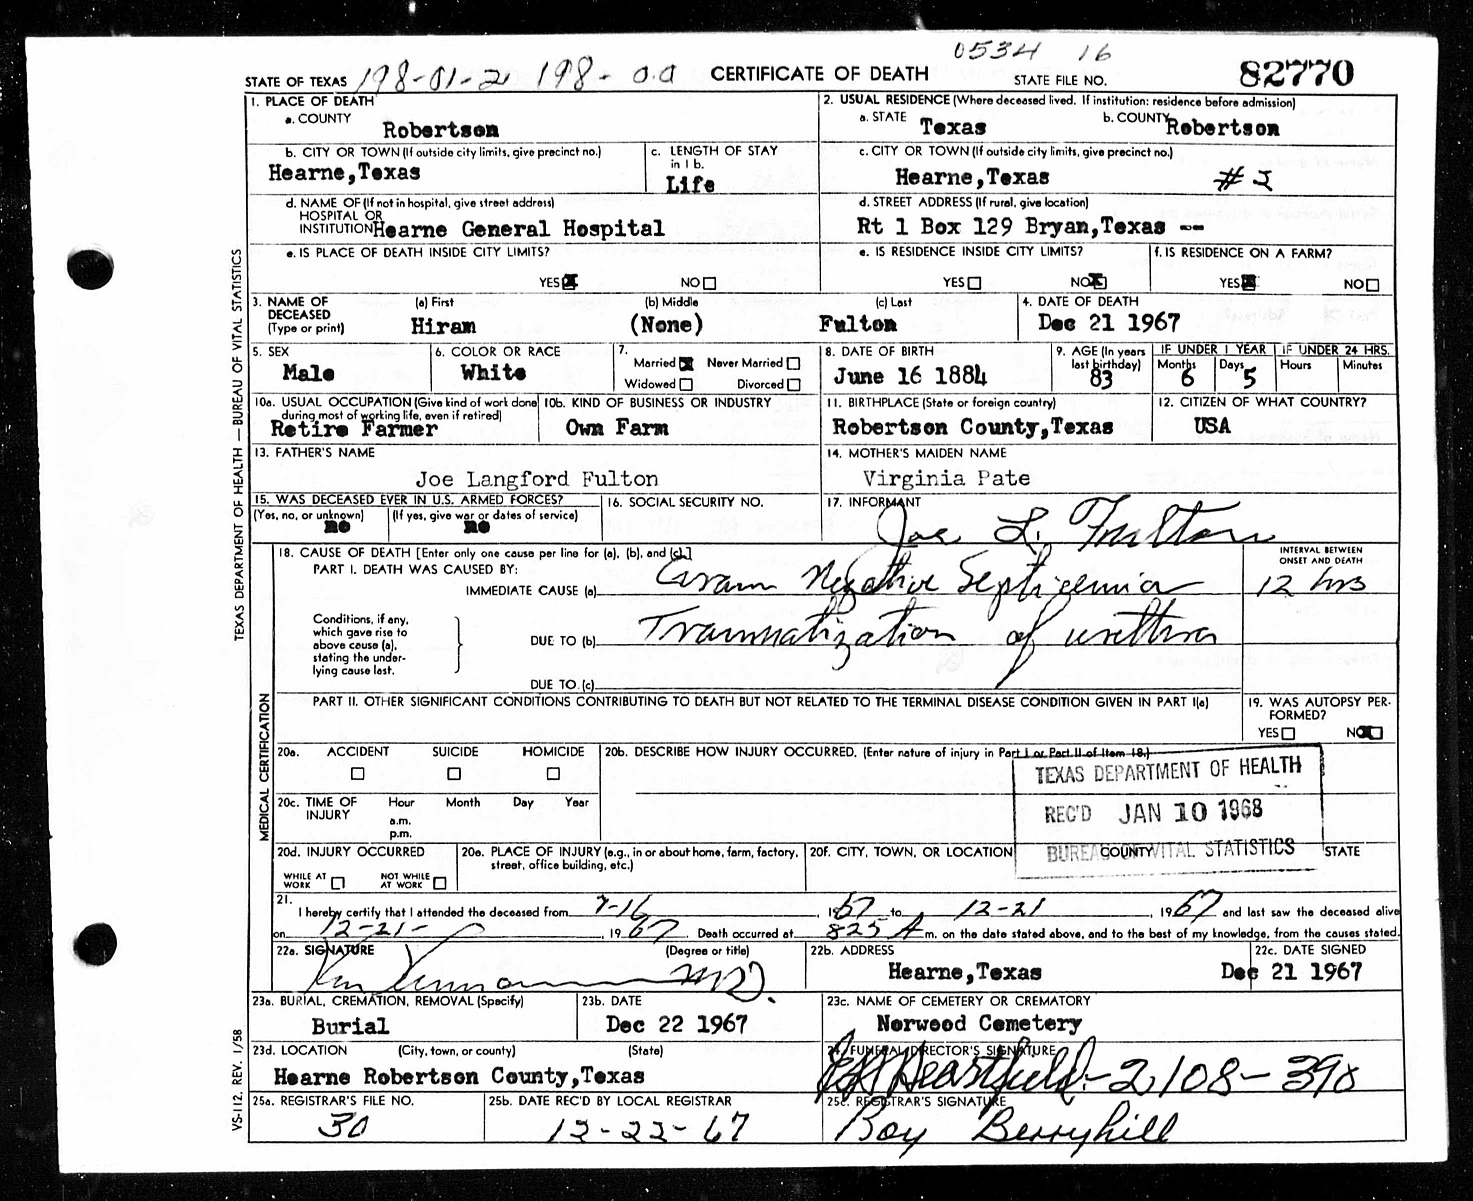 0534 16
STATE OF TEXAS 198-01-2 198-0.0 CERTIFICATE OF DEATH STATE FILE NO. 82770
1. PLACE OF DEATH
a. COUNTY Robertson
2. USUAL RESIDENCE (Where deceased lived. If institution: residence before admission)
a. STATE Texas b. COUNTY Robertson
b. CITY OR TOWN (If outside city limits, give precinct no.) Hearne,Texas
c. LENGTH OF STAY in 1 b. Life
c. CITY OR TOWN (If outside city limits, give precinct no.)
Hearne,Texas
d. NAME OF (If not in hospital, give street address)
HOSPITAL OR
INSTITUTION Hearne General Hospital
d. STREET ADDRESS (If rural, give location)
Rt 1 Box 129 Bryan,Texas --
e. IS PLACE OF DEATH INSIDE CITY LIMITS?
YES NO
e. IS RESIDENCE INSIDE CITY LIMITS?
YES NO
f. IS RESIDENCE ON A FARM?
YES NO
3. NAME OF DECEASED (Type or print)
(a) First (b) Middle (c) Last
Hiram (None) Fulton
4. DATE OF DEATH
Dec 21 1967
5. SEX
Male
6. COLOR OR RACE
White
7.
Married Never Married
Widowed Divorced
8. DATE OF BIRTH
June 16 1884
9. AGE (In years last birthday)
83
IF UNDER 1 YEAR IF UNDER 24 HRS.
Months Days Hours Minutes
6 5
10a. USUAL OCCUPATION (Give kind of work done during most of working life, even if retired)
Retire Farmer
10b. KIND OF BUSINESS OR INDUSTRY
Own Farm
11. BIRTHPLACE (State or foreign country)
Robertson County,Texas
12. CITIZEN OF WHAT COUNTRY?
USA
13. FATHER'S NAME
Joe Langford Fulton
14. MOTHER'S MAIDEN NAME
Virginia Pate
15. WAS DECEASED EVER IN U.S. ARMED FORCES?
(Yes, no, or unknown) (If yes, give war or dates of service)
no no
16. SOCIAL SECURITY NO.
17. INFORMANT
Joe L. Fulton
18. CAUSE OF DEATH [Enter only one cause per line for (a), (b), and (c).]
PART I. DEATH WAS CAUSED BY:
IMMEDIATE CAUSE (a) Gram Negative Septicemia
INTERVAL BETWEEN ONSET AND DEATH
12 hrs
Conditions, if any,
which gave rise to
above cause (a),
stating the under-
lying cause last.
DUE TO (b) Traumatization of urethra
DUE TO (c)
PART II. OTHER SIGNIFICANT CONDITIONS CONTRIBUTING TO DEATH BUT NOT RELATED TO THE TERMINAL DISEASE CONDITION GIVEN IN PART I(a)
19. WAS AUTOPSY PER-
FORMED?
YES NO
20a. ACCIDENT SUICIDE HOMICIDE
20b. DESCRIBE HOW INJURY OCCURRED. (Enter nature of injury in Part I or Part II of Item 18.)
TEXAS DEPARTMENT OF HEALTH
REC'D JAN 10 1968
BUREAU VITAL STATISTICS
20c. TIME OF INJURY
Hour Month Day Year
a.m.
p.m.
20d. INJURY OCCURRED
WHILE AT WORK NOT WHILE AT WORK
20e. PLACE OF INJURY (e.g., in or about home, farm, factory, street, office building, etc.)
20f. CITY, TOWN, OR LOCATION COUNTY STATE
21.
I hereby certify that I attended the deceased from 7-16, 1967 to 12-21, 1967 and last saw the deceased alive
on 12-21-, 1967. Death occurred at 825 A m. on the date stated above, and to the best of my knowledge, from the causes stated.
22a. SIGNATURE (Degree or title)
MD.
22b. ADDRESS
Hearne,Texas
22c. DATE SIGNED
Dec 21 1967
23a. BURIAL, CREMATION, REMOVAL (Specify)
Burial
23b. DATE
Dec 22 1967
23c. NAME OF CEMETERY OR CREMATORY
Norwood Cemetery
23d. LOCATION (City, town, or county) (State)
Hearne Robertson County,Texas
24. FUNERAL DIRECTOR'S SIGNATURE
25a. REGISTRAR'S FILE NO.
30
25b. DATE REC'D BY LOCAL REGISTRAR
12-22-67
25c. REGISTRAR'S SIGNATURE
Roy Berryhill
TEXAS DEPARTMENT OF HEALTH — BUREAU OF VITAL STATISTICS
MEDICAL CERTIFICATION
VS-112. REV. 1/58